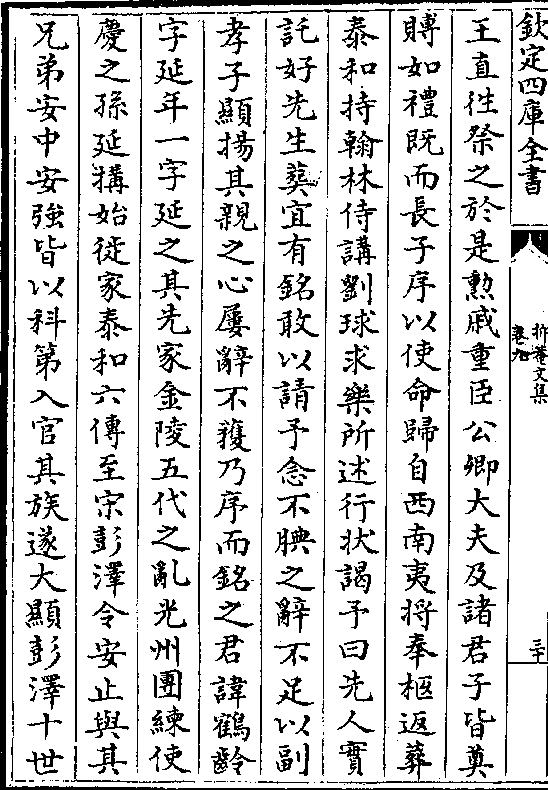 欽定四庫全書
抑菴文集
卷九
三十
王直徃祭之於是勲戚重臣公卿大夫及諸君子皆奠
賻如禮既而長子序以使命歸自西南夷将奉柩返葬
泰和持翰林侍講劉球求樂所述行状謁予曰先人實
託好先生葬宜有銘敢以請予念不腆之辭不足以副
孝子顯揚其親之心屢辭不獲乃序而銘之君諱鶴齡
字延年一字延之其先家金陵五代之亂光州團練使
慶之孫延構始徙家泰和六傳至宋彭澤令安止與其
兄弟安中安強皆以科第入官其族遂大顯彭澤十世